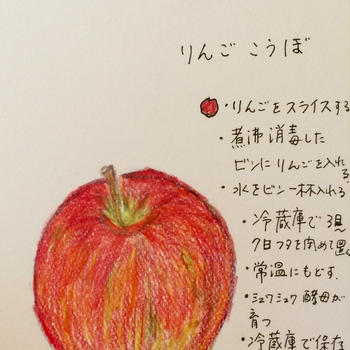 りんご こうぼ
・りんごをスライスする
・煮沸消毒した
ビンにりんごを入れる
・水をビン一杯入れる
・冷蔵庫で
7日フタを閉めて置く
・常温にもどす.
・シュワシュワ 酵母が
育つ
・冷蔵庫で保存